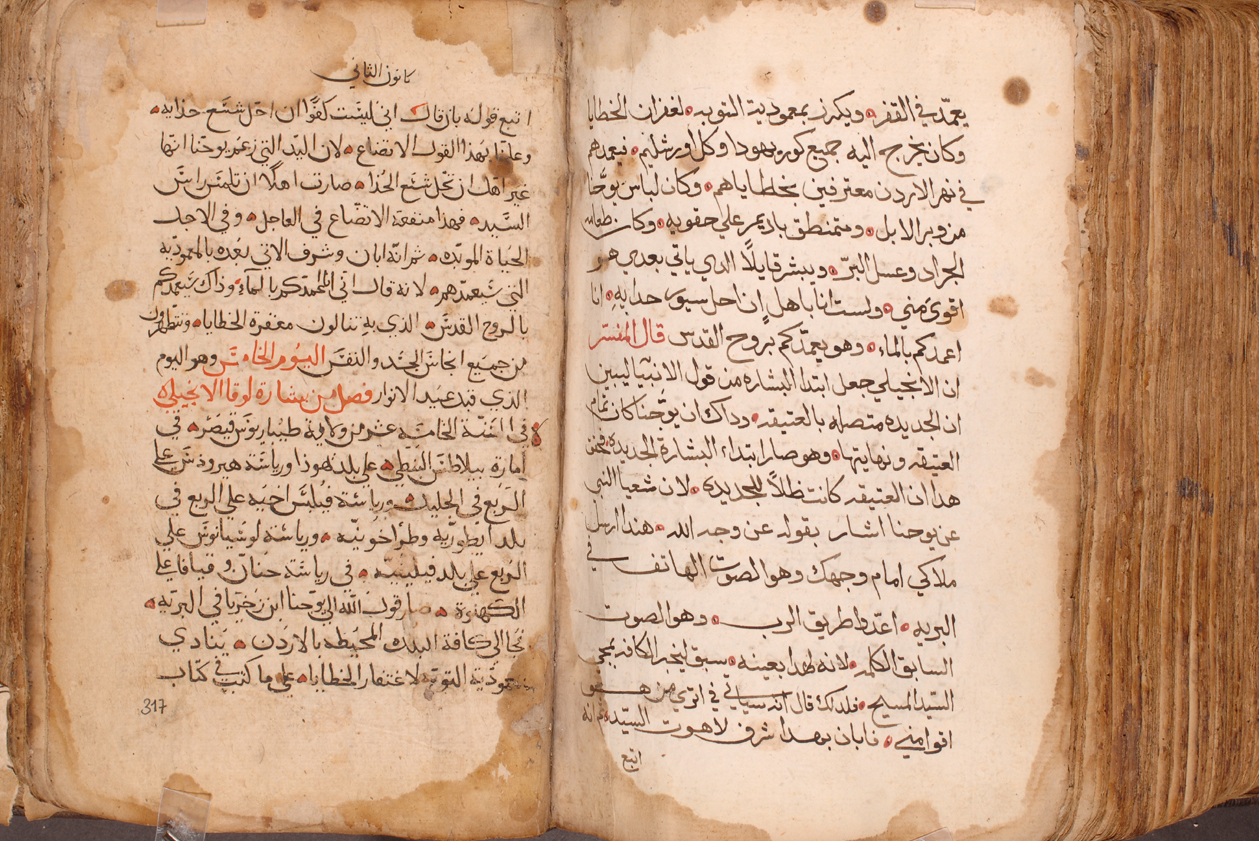 يعمّد في القفر ويكرز بمعمودية التوبه لغفران الخطايا
وكان يخرج اليه جميع كورة يهودا وكل اورشليم فيعمدهم
في نهر الاردن معترفين بخطاياهم وكان لباس يوحنا
من وبر الابل ومتمنطق بلاديم علي حقويه وكان طعامه
الجراد وعسل البرّ ويبشر قايلاً الدي ياتي بعدي هو
اقوى مني ولست انا باهل ان احل سيور حدايه انا
اعمدكم بالماء وهو يعمدكم بروح القدس قال المفسّر
ان الانجيلي جعل ابتدا البشاره من قول الانبيا ليبين
ان الجديده متصله بالعتيقه وداك ان يوحنا كان تمام
العتيقه ونهايتها وهو صار ابتداء البشارة الجديده
هدا ان العتيقه كانت ظلاً للجديده لان شعيا النبي
عن يوحنا اشار بقوله عن وجه الله هندا ارسل
ملاكي امام وجهك وهو الصوت الهاتف في
البريه اعدّوا طريق الرب وهو الصوت
السابق الكلمه لانه لهدا بعينه سبق ليخبر الكافه بمجي
السيّد المسيح فلدلك قال انه سياتي في اتري من هو
اقوا مني فابان بهدا شرف لاهوت السيّد ثم انه
اتبع
كانون الثاني
اتبع قوله بان قال اني لست كفوًا ان احل شسع حذايه
وعلمنا بهذا القول الاتضاع لان اليد التي زعم يوحنا انها
غير اهل ان تحل شسع الحذا صارت اهلاً ان تلمس راس
السيّد فهذا منفعة الاتضاع في العاجل وفي الاجل
الحياة الموبّده ثم انه ابان وشرف الاتي بعده بالمعموديه
التي سيعمدهم لانه قال اني اعمدكم بالماء وذاك سيعمدكم
بالروح القدس الذي به تنالون مغفرة الخطايا وتتطهرون
من جميع انجاس الجسد والنفس اليوم الخامس وهو اليوم
الذي قبد عيد الانوار فصل من بشارة لوقا الانجيلي
في السنة الخامسة عشر من ولاية طيباريوس قيصر في
امارة بيلاطس النبطي على بلد يهوذا ورياسة هيروذس على
الربع في الجليل ورياسة فيلبس اخيه على الربع في
بلد ايطوريّه وطراخونيّه ورياسة لوسانيوس على
الربع على بلد في رياسة حنان وقيافا على
الكهنوة صار قول الله الى يوحنا ابن زخريا في البريه
فجا الى كافة البلد المحيطه بالاردن ينادي
بمعموذية التوبة لاغتفار الخطايا على ما كتب في كتاب
317